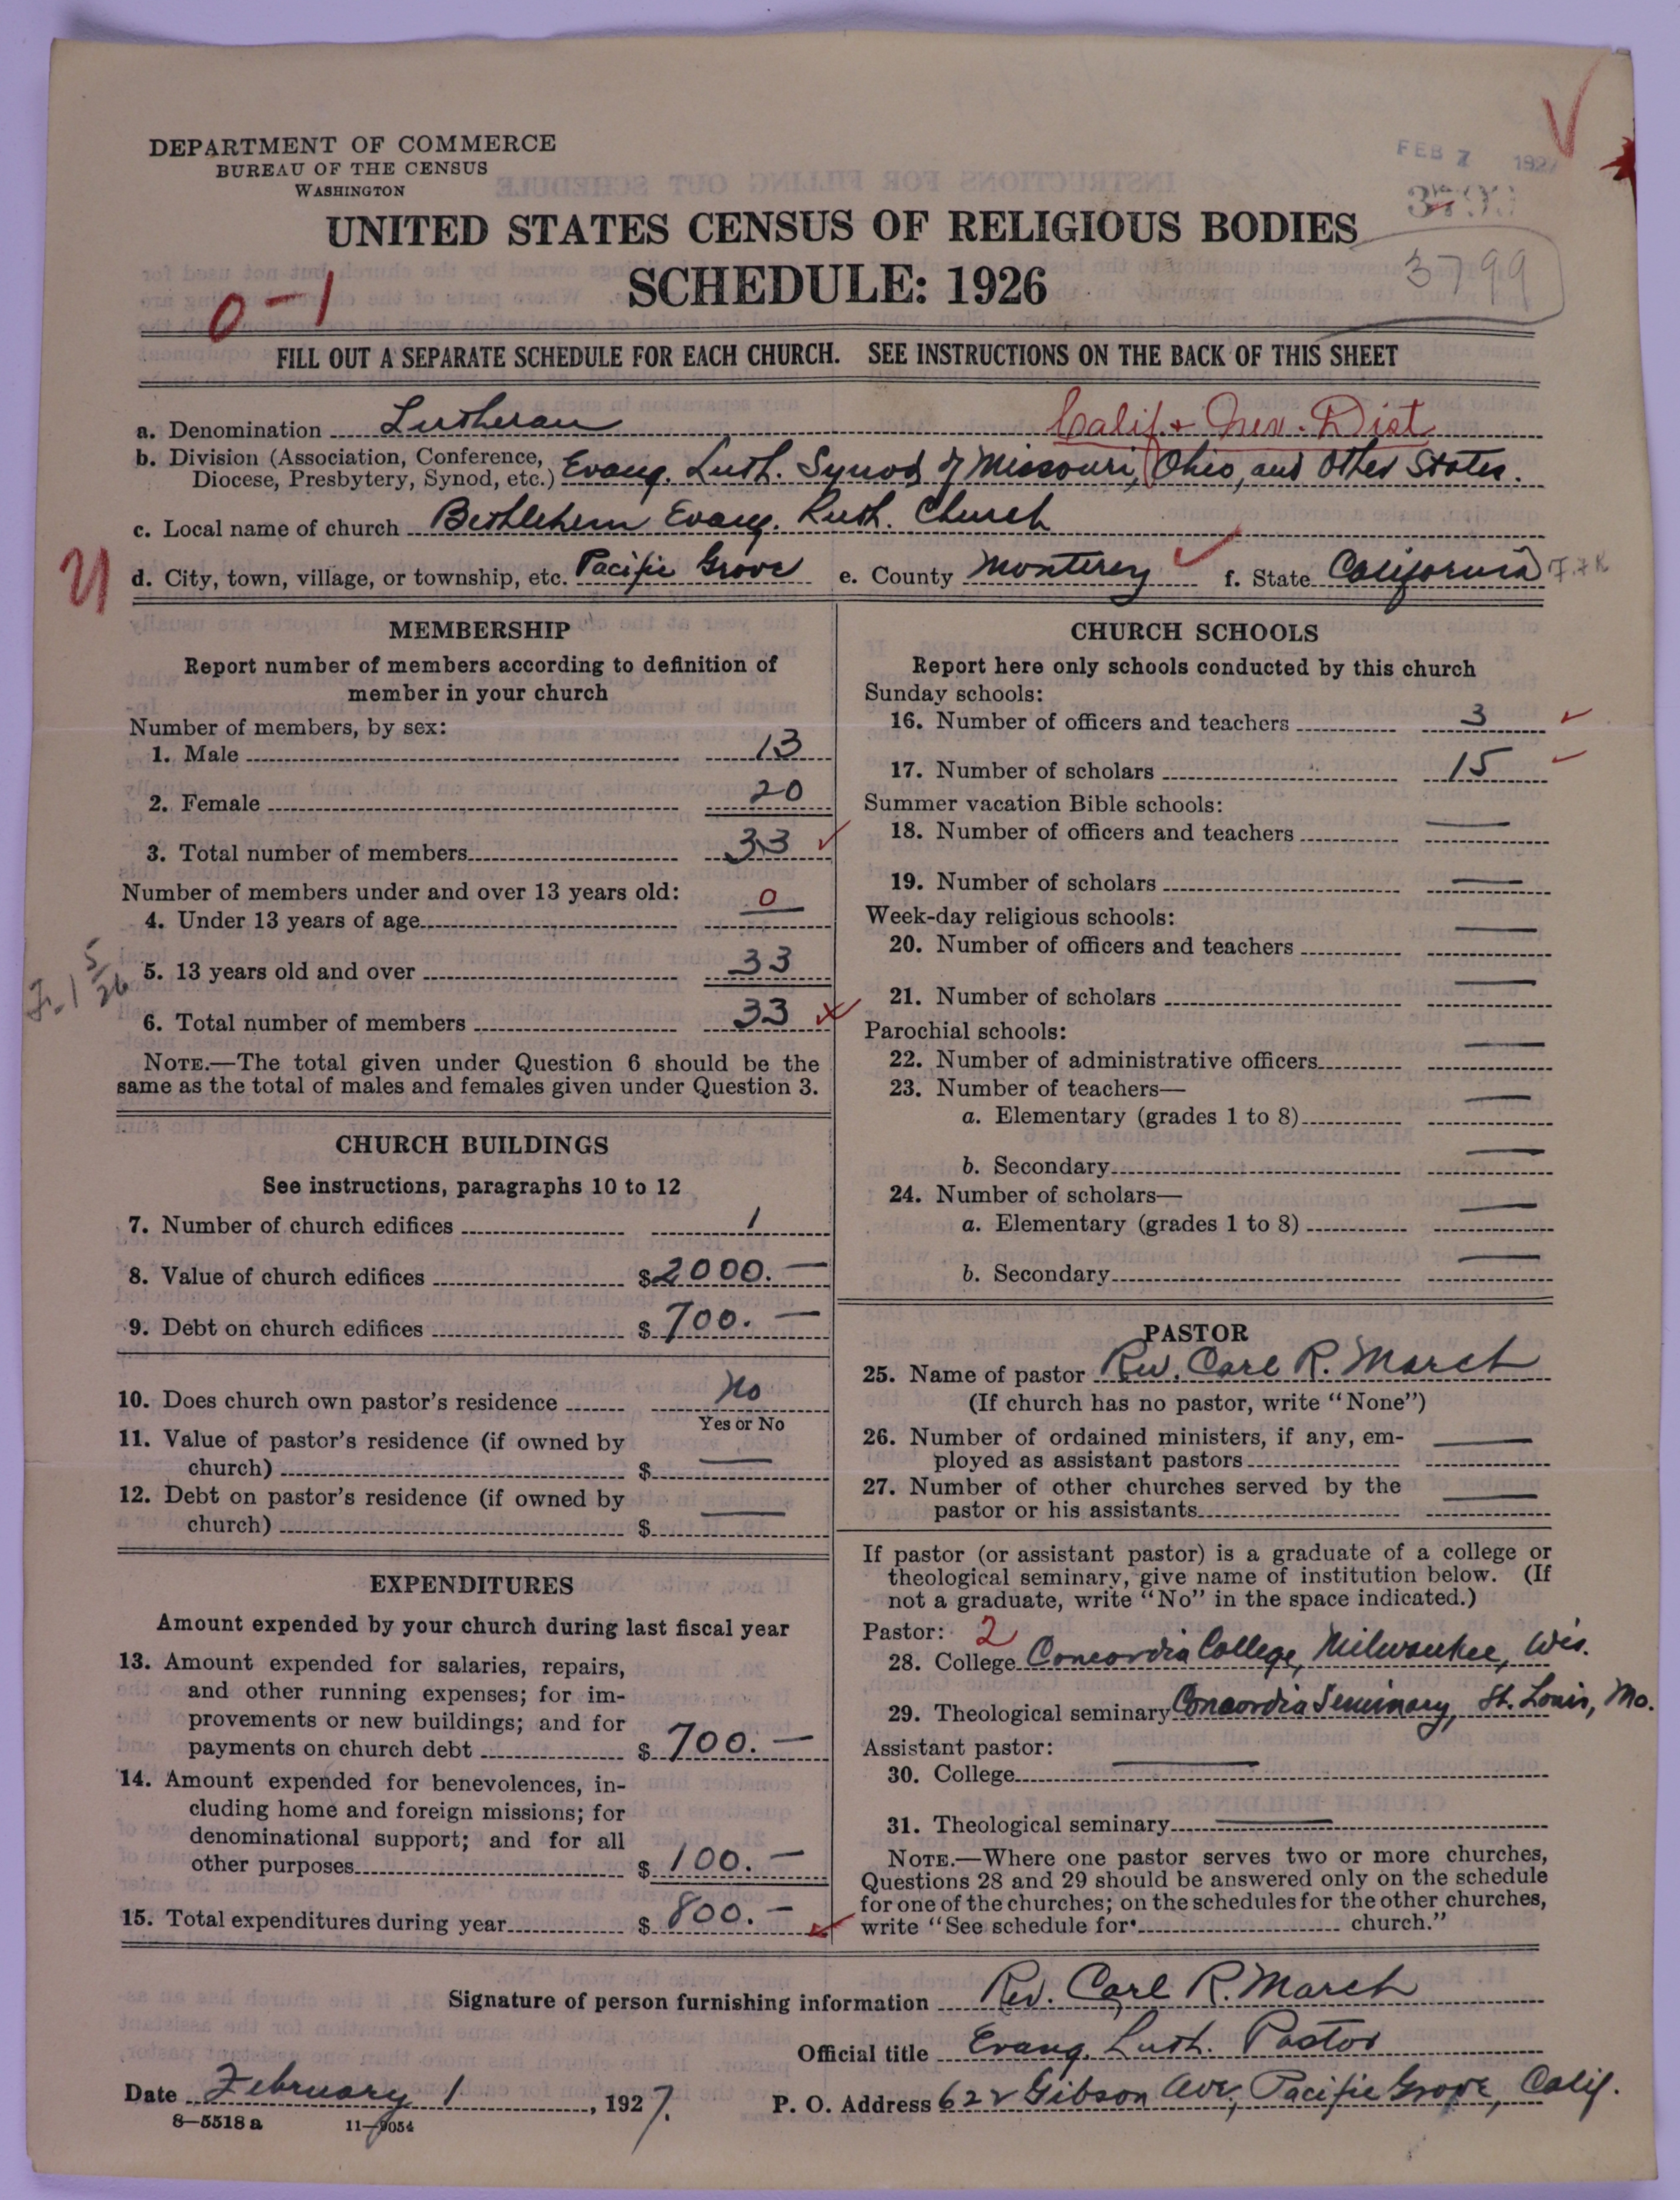 DEPARTMENT OF COMMERCE
BUREAU OF THE CENSUS
WASHINGTON
FEB 7 1927
UNITED STATES CENSUS OF RELIGIOUS BODIES
SCHEDULE: 1926
3799
0-1
FILL OUT A SEPARATE SCHEDULE FOR EACH CHURCH. SEE INSTRUCTIONS ON THE BACK OF THIS SHEET
a. Denomination Lutheran Calif. + Nev. Dist
b. Division (Association, Conference, Diocese, Presbytery, Synod, etc.) Evang. Luth. Synod of Missouri, Ohio, and Other States.
c. Local name of church Bethlehem Evang. Luth. Church
d. City, town, village, or township, etc. Pacific Grove e. County Monterey f. State California
MEMBERSHIP
Report number of members according to definition of
member in your church
Number of members, by sex:
1. Male 13
2. Female 20
3. Total number of members 33
Number of members under and over 13 years old:
4. Under 13 years of age 0
5. 13 years old and over 33
6. Total number of members 33
NOTE.—The total given under Question 6 should be the
same as the total of males and females given under Question 3.
CHURCH BUILDINGS
See instructions, paragraphs 10 to 12
7. Number of church edifices 1
8. Value of church edifices $2000.—
9. Debt on church edifices $700.—
10. Does church own pastor's residence No
Yes or No
11. Value of pastor's residence (if owned by
church) $ —
12. Debt on pastor's residence (if owned by
church) $ —
EXPENDITURES
Amount expended by your church during last fiscal year
13. Amount expended for salaries, repairs,
and other running expenses; for im-
provements or new buildings; and for
payments on church debt $700.—
14. Amount expended for benevolences, in-
cluding home and foreign missions; for
denominational support; and for all
other purposes $100.—
15. Total expenditures during year $800.—
CHURCH SCHOOLS
Report here only schools conducted by this church
Sunday schools:
16. Number of officers and teachers 3
17. Number of scholars 15
Summer vacation Bible schools:
18. Number of officers and teachers —
19. Number of scholars —
Week-day religious schools:
20. Number of officers and teachers —
21. Number of scholars —
Parochial schools:
22. Number of administrative officers —
23. Number of teachers—
a. Elementary (grades 1 to 8) —
b. Secondary —
24. Number of scholars—
a. Elementary (grades 1 to 8) —
b. Secondary —
PASTOR
25. Name of pastor Rev. Carl R. March
(If church has no pastor, write "None")
26. Number of ordained ministers, if any, em-
ployed as assistant pastors —
27. Number of other churches served by the
pastor or his assistants —
If pastor (or assistant pastor) is a graduate of a college or
theological seminary, give name of institution below. (If
not a graduate, write "No" in the space indicated.)
Pastor: 2
28. College Concordia College, Milwaukee, Wis.
29. Theological seminary Concordia Seminary, St. Louis, Mo.
Assistant pastor:
30. College —
31. Theological seminary —
NOTE.—Where one pastor serves two or more churches,
Questions 28 and 29 should be answered only on the schedule
for one of the churches; on the schedules for the other churches,
write "See schedule for church."
Signature of person furnishing information Rev. Carl R. March
Official title Evang. Luth. Pastor
Date February 1, 1927. P. O. Address 622 Gibson Ave, Pacific Grove, Calif.
8—5518 a 11—9054